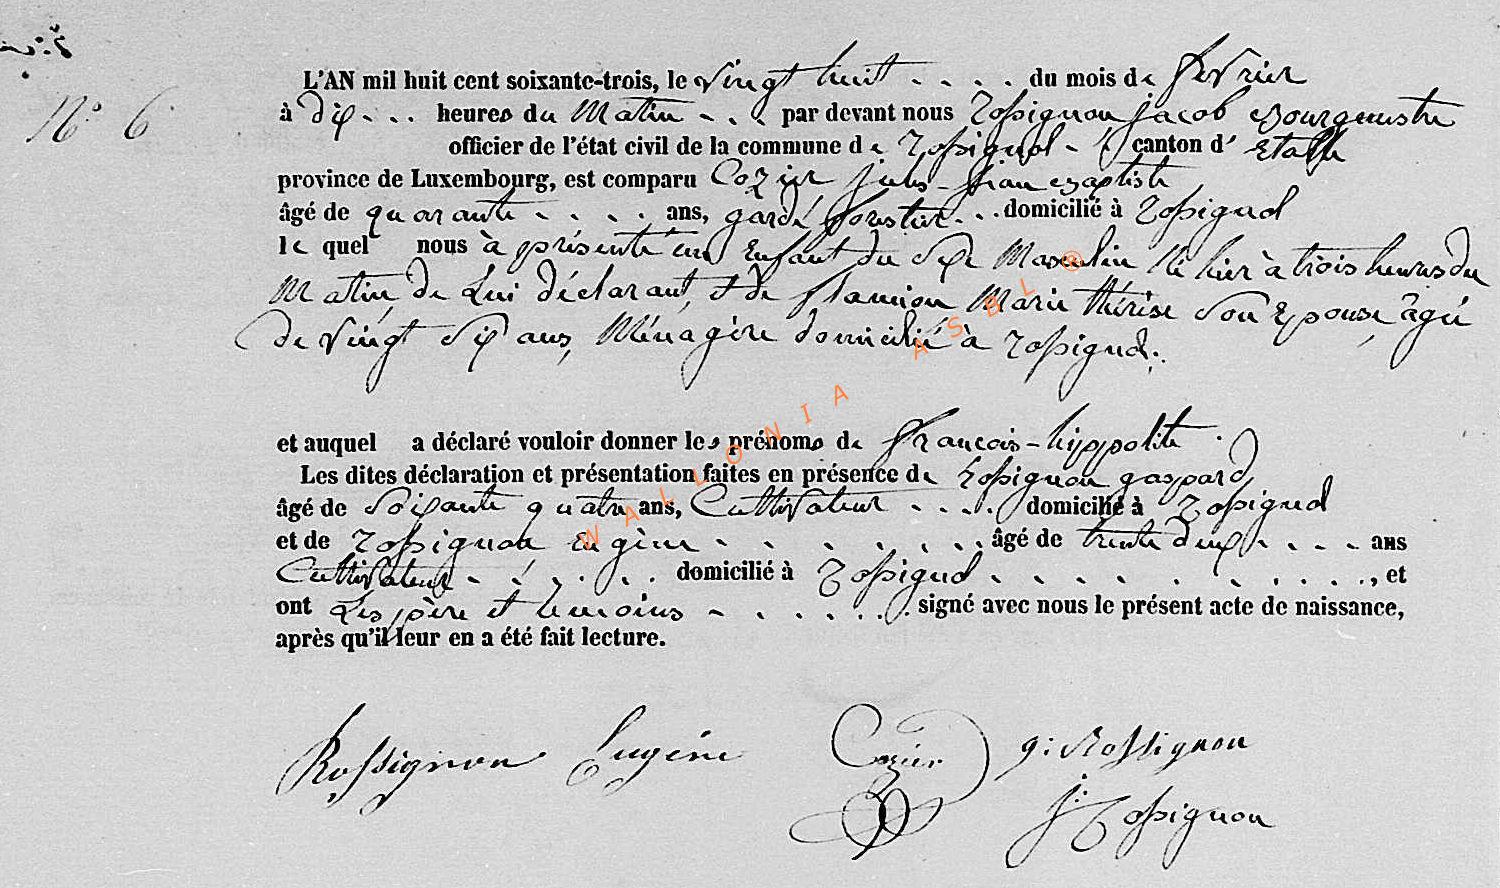 N° 6
L'AN mil huit cent soixante-trois, le vingt huit . . . . du mois de fevrier
à dix . . . heures du Matin . . . par devant nous Rossignon jacob Bourgmestre
officier de l'état civil de la commune de Rossignol - canton d' Etalle
province de Luxembourg, est comparu Cozier jules-jean Baptiste
âgé de quarante . . . . ans, garde forestier . . . domicilié à Rossignol
le quel nous à présenté un Enfant du Sexe Masculin Né hier à trois heures du
Matin, de Lui déclarant, et de flamion Marie thérèse Son Epouse, âgée
de vingt Six ans, Ménagère domicilié à Rossignol.
et auquel a déclaré vouloir donner les prénoms de françois-hyppolite .
Les dites déclaration et présentation faites en présence de Rossignon gaspard
âgé de Soixante quatre ans, Cultivateur . . . . domicilié à Rossignol
et de Rossignon Eugène . . . . . . . âgé de trente deux . . . . ans
Cultivateur . . . . . . domicilié à Rossignol . . . . . . . . . . , et
ont Les père et temoins . . . . . . signé avec nous le présent acte de naissance,
après qu'il leur en a été fait lecture.
Rossignon Eugéne Cozier g: Rossignon
j: Rossignon
WALLONIA ASBL ®